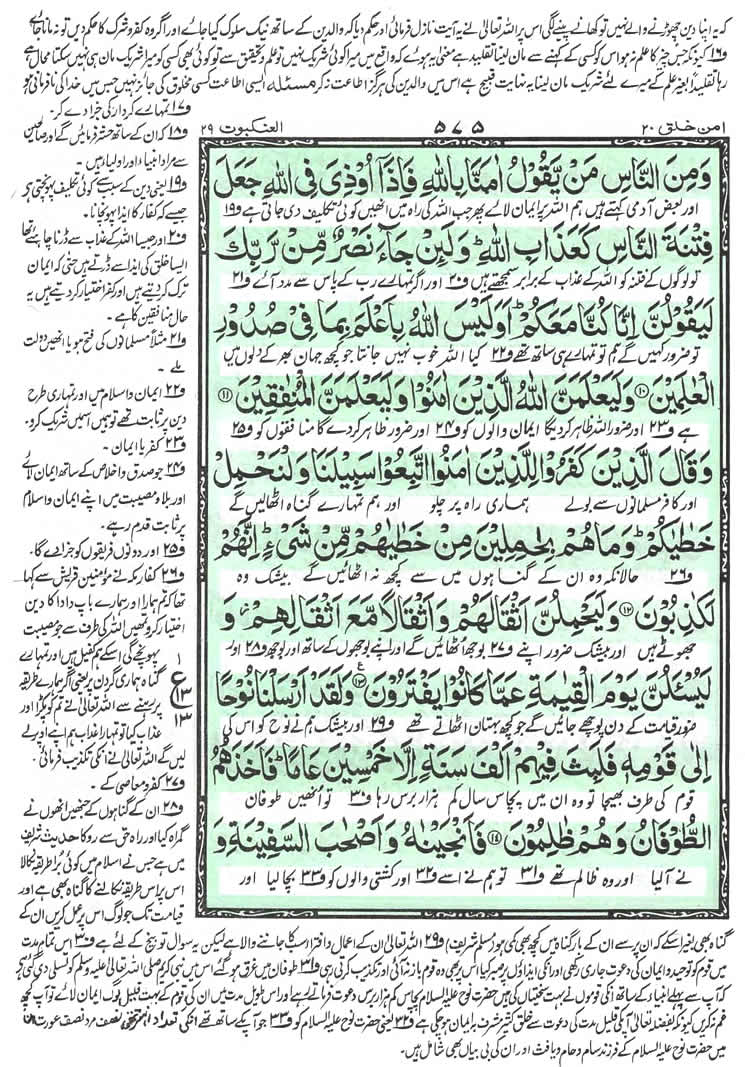 کہ یہ اپنا دین چھوڑنے والے نہیں تو کھانے پینے لگی اس پر اللہ تعالیٰ نے یہ آیت نازل فرمائی اور حکم دیا کہ والدین کے ساتھ نیک سلوک کیا جائے اور اگر وہ کفر و شرک کا حکم دیں تو نہ مانا جائے
و۱۶ کیونکہ جس چیز کا علم نہ ہو اس کو کسی کے کہنے سے مان لینا تقلید ہے معنی یہ ہوئے کہ واقع میں میرا کوئی شریک نہیں تو علم و تحقیق سے تو کوئی بھی کسی کو میرا شریک مان ہی نہیں سکتا محال ہے
رہا تقلیداً بغیر علم کے میرے لئے شریک مان لینا یہ نہایت قبیح ہے اس میں والدین کی ہرگز اطاعت نہ کر مسئلہ ایسی اطاعت کسی مخلوق کی جائز نہیں جس میں خدا کی نافرمانی ہو
امن خلق ۲۰
۵۷۵
العنکبوت ۲۹
وَمِنَ النَّاسِ مَنْ يَّقُوْلُ اٰمَنَّا بِاللّٰهِ فَاِذَاۤ اُوْذِيَ فِي اللّٰهِ جَعَلَ
اور بعض آدمی کہتے ہیں ہم اللہ پر ایمان لائے پھر جب اللہ کی راہ میں انھیں کوئی تکلیف دی جاتی ہے و۱۹
فِتْنَةَ النَّاسِ كَعَذَابِ اللّٰهِ ؕ وَلَئِنْ جَآءَ نَصْرٌ مِّنْ رَّبِّكَ
تو لوگوں کے فتنہ کو اللہ کے عذاب کے برابر سمجھتے ہیں و۲۰ اور اگر تمہارے رب کے پاس سے مدد آئے و۲۱
لَيَقُوْلُنَّ اِنَّا كُنَّا مَعَكُمْ ؕ اَوَلَيْسَ اللّٰهُ بِاَعْلَمَ بِمَا فِيْ صُدُوْرِ
تو ضرور کہیں گے ہم تو تمہارے ہی ساتھ تھے و۲۲ کیا اللہ خوب نہیں جانتا جو کچھ جہان بھر کے دلوں میں
الْعٰلَمِيْنَ ۝۱۰ وَلَيَعْلَمَنَّ اللّٰهُ الَّذِيْنَ اٰمَنُوْا وَلَيَعْلَمَنَّ الْمُنٰفِقِيْنَ ۝۱۱
ہے و۲۳ اور ضرور اللہ ظاہر کر دیگا ایمان والوں کو و۲۴ اور ضرور ظاہر کر دے گا منافقوں کو و۲۵
وَقَالَ الَّذِيْنَ كَفَرُوْا لِلَّذِيْنَ اٰمَنُوا اتَّبِعُوْا سَبِيْلَنَا وَلْنَحْمِلْ
اور کافر مسلمانوں سے بولے ہماری راہ پر چلو اور ہم تمہارے گناہ اٹھالیں گے
خَطٰيٰكُمْ ؕ وَمَا هُمْ بِحٰمِلِيْنَ مِنْ خَطٰيٰهُمْ مِّنْ شَيْءٍ ؕ اِنَّهُمْ
و۲۶ حالانکہ وہ ان کے گناہوں میں سے کچھ نہ اٹھائیں گے بیشک وہ
لَكٰذِبُوْنَ ۝۱۲ وَلَيَحْمِلُنَّ اَثْقَالَهُمْ وَاَثْقَالًا مَّعَ اَثْقَالِهِمْ ؗ وَ
جھوٹے ہیں اور بیشک ضرور اپنے و۲۷ بوجھ اٹھائیں گے اور اپنے بوجھوں کے ساتھ اور بوجھ و۲۸ اور
لَيُسْـَٔلُنَّ يَوْمَ الْقِيٰمَةِ عَمَّا كَانُوْا يَفْتَرُوْنَ ۝۱۳ وَلَقَدْ اَرْسَلْنَا نُوْحًا
ضرور قیامت کے دن پوچھے جائیں گے جو کچھ بہتان اٹھاتے تھے و۲۹ اور بیشک ہم نے نوح کو اس کی
اِلٰى قَوْمِهٖ فَلَبِثَ فِيْهِمْ اَلْفَ سَنَةٍ اِلَّا خَمْسِيْنَ عَامًا ؕ فَاَخَذَهُمُ
قوم کی طرف بھیجا تو وہ ان میں پچاس سال کم ہزار برس رہا و۳۰ تو انھیں طوفان
الطُّوْفَانُ وَهُمْ ظٰلِمُوْنَ ۝۱۴ فَاَنْجَيْنٰهُ وَاَصْحٰبَ السَّفِيْنَةِ وَ
نے آلیا اور وہ ظالم تھے و۳۱ تو ہم نے اسے و۳۲ اور کشتی والوں کو و۳۳ بچالیا اور
و۱۷ تمہارے کردار کی جزا دے کر۔
و۱۸ کہ ان کے ساتھ حشر فرمائیں گے اور صالحین
سے مراد انبیاء اور اولیاء ہیں۔
و۱۹ یعنی دین کے سبب سے کوئی تکلیف پہونچتی ہے
جیسے کہ کفار کا ایذا پہونچانا۔
و۲۰ اور جیسا اللہ کے عذاب سے ڈرنا چاہئے تھا
ایسا خلق کی ایذا سے ڈرتے ہیں حتی کہ ایمان
ترک کر دیتے ہیں اور کفر اختیار کر دیتے ہیں یہ
حال منافقین کا ہے۔
و۲۱ مثلاً مسلمانوں کی فتح ہو یا انھیں دولت
ملے۔
و۲۲ ایمان و اسلام میں اور تمہاری طرح
دین پر ثابت تھے تو ہمیں اس میں شریک کرو۔
و۲۳ کفر یا ایمان۔
و۲۴ جو صدق و اخلاص کے ساتھ ایمان لائے
اور بلا و مصیبت میں اپنے ایمان و اسلام
پر ثابت قدم رہے۔
و۲۵ اور دونوں فریقوں کو جزا دے گا۔
و۲۶ کفار مکہ نے مؤمنین قریش سے کہا
تھا کہ تم ہمارا اور ہمارے باپ دادا کا دین
اختیار کرو تمھیں اللہ کی طرف سے جو مصیبت
پہونچے گی اسکے ہم کفیل ہیں اور تمہارے
گناہ ہماری گردن پر یعنی اگر ہمارے طریقہ
پر رہنے سے اللہ تعالیٰ نے تم کو پکڑا اور
عذاب کیا تو تمہارا عذاب ہم اپنے اوپر لے
لیں گے اللہ تعالیٰ نے انکی تکذیب فرمائی۔
و۲۷ کفر و معاصی کے۔
و۲۸ ان کے گناہوں کے جنھیں انھوں نے
گمراہ کیا اور راہ حق سے روکا حدیث شریف
میں ہے جس نے اسلام میں کوئی بُرا طریقہ نکالا
اس پر اس طریقہ نکالنے کا گناہ بھی ہے اور
قیامت تک جو لوگ اس پر عمل کریں ان کے
۱
ع
۱۳
۱۳
گناہ بھی بغیر اسکے کہ ان پر سے ان کے بار گناہ میں کچھ بھی کمی ہو (مسلم شریف) و۲۹ اللہ تعالیٰ ان کے اعمال و افترا سب کا جاننے والا ہے لیکن یہ سوال توبیخ کے لئے ہے و۳۰ اس تمام مدت
میں قوم کو توحید و ایمان کی دعوت جاری رکھی اور انکی ایذاؤں پر صبر کیا اس پر بھی وہ قوم باز نہ آئی اور تکذیب کرتی رہی و۳۱ طوفان میں غرق ہو گئے اس میں نبی کریم صلی اللہ علیہ وسلم کو تسلی دی گئی ہے
کہ آپ سے پہلے انبیاء کے ساتھ انکی قوموں نے بہت سختیاں کی ہیں حضرت نوح علیہ السلام پچاس کم ہزار برس دعوت فرماتے رہے اور اس طویل مدت میں ان کی قوم کے بہت قلیل لوگ ایمان لائے تو آپ کچھ
غم نہ کریں کیونکہ بفضلہ تعالیٰ آپکی قلیل مدت کی دعوت سے خلق کثیر مشرف بایمان ہو چکی ہے و۳۲ یعنی حضرت نوح علیہ السلام کو و۳۳ جو آپ کے ساتھ تھے انکی تعداد اٹھتر تھی نصف مرد نصف عورت ان
میں حضرت نوح علیہ السلام کے فرزند سام و حام و یافث اور ان کی بی بیاں بھی شامل ہیں۔